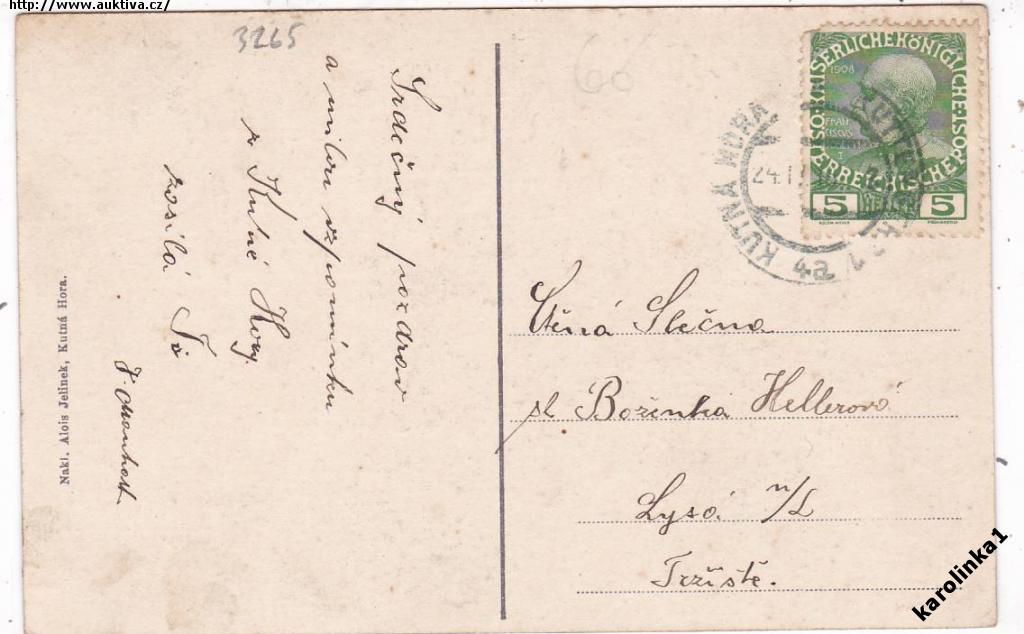 http://www.auktiva.cz/
3265
Srdečný pozdrav
a milou vzpomínku
z Kutné Hory
zasílá Tě
Nakl. Alois Jelínek, Kutná Hora.
KAISERLICHE KÖNIGLICHE
ÖSTERREICHISCHE POST
1908
FRAN
CISCUS
I
5 HELLER 5
KUTNÁ HORA
24.I
Ctěná Slečna
sl Boženka Hellerová
Lysá n/L
Tržiště.
karolinka1